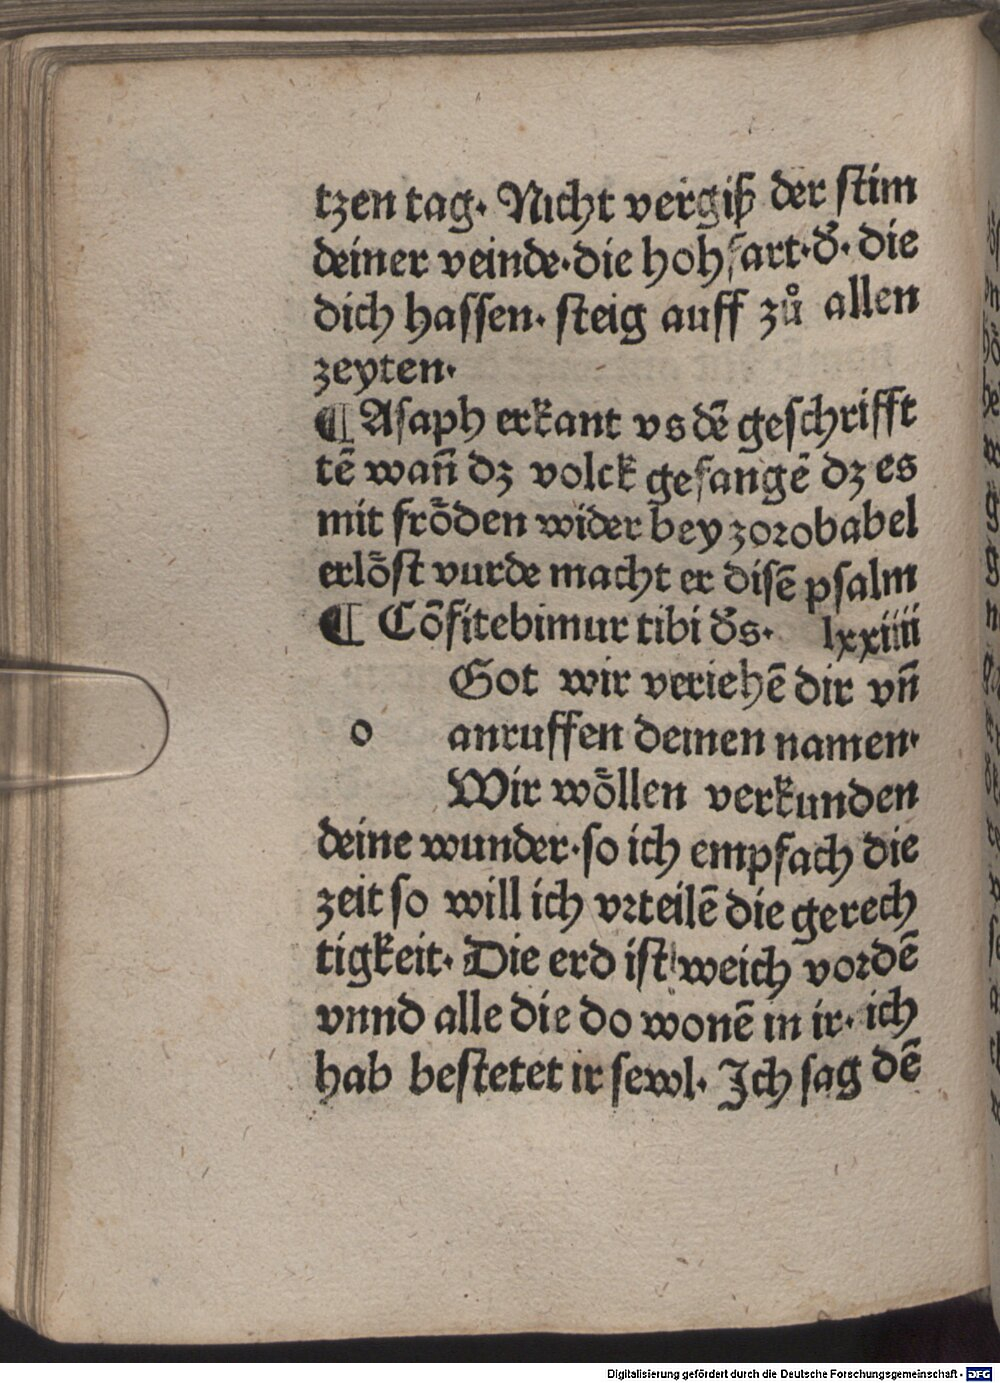 tzen tag. Nicht vergiß der stim
deiner veinde. die hohfart. d̄. die
dich hassen. steig auff zů allen
zeyten.
¶ Asaph erkant vs dē geschrifft
tē wan̄ dz volck gefangē dz es
mit frõden wider bey zorobabel
erlõst vurde macht er disē psalm
¶ Cōfitebimur tibi d̄s. lxxiiii
Got wir veriehē dir vn̄
o anruffen deinen namen.
Wir wõllen verkunden
deine wunder. so ich empfach die
zeit so will ich vrteilē die gerech
tigkeit. Die erd ist weich vordē
vnnd alle die do wonē in ir. ich
hab bestetet ir sewl. Ich sag dē
Digitalisierung gefördert durch die Deutsche Forschungsgemeinschaft - DFG